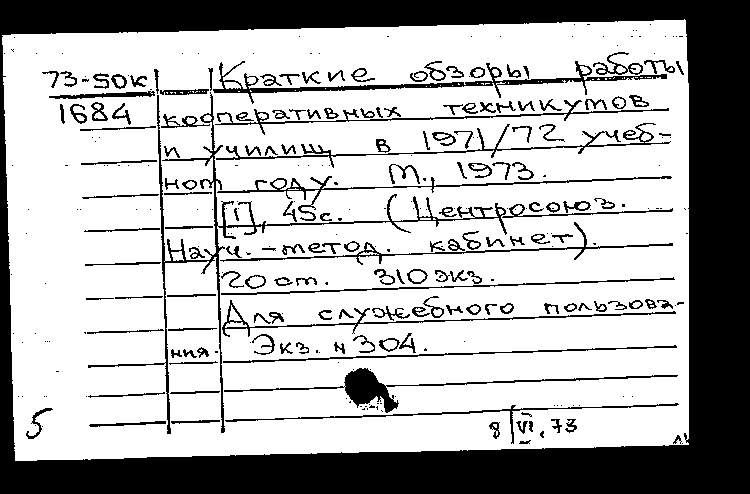 73-50к Краткие обзоры работы
1684 кооперативных техникумов
и училищ в 1971/72 учеб-
ном году. М., 1973.
[1], 45с. (Центросоюз.
Науч.-метод. кабинет).
20 см. 310 экз.
Для служебного пользова-
ния. Экз. N 304.
5
8/VI.73